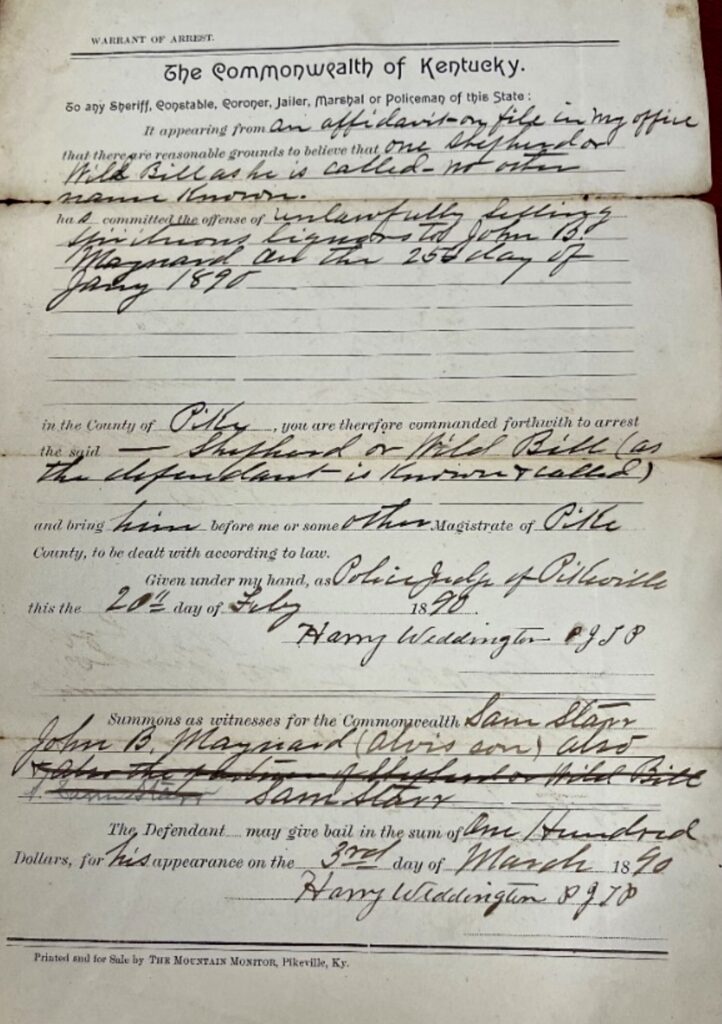 WARRANT OF ARREST.
The Commonwealth of Kentucky.
To any Sheriff, Constable, Coroner, Jailer, Marshal or Policeman of this State:
It appearing from an affidavit on file in my office
that there are reasonable grounds to believe that one Shepherd or
Wild Bill as he is called - no other
name Known.
has committed the offense of unlawfully Selling
Spirituous liquors to John B.
Maynard on the 25th day of
Jany 1890
in the County of Pike, you are therefore commanded forthwith to arrest
the said — Shepherd or Wild Bill (as
the defendant is Known & called)
and bring him before me or some other Magistrate of Pike
County, to be dealt with according to law.
Given under my hand, as Police Judge of Pikeville
this the 20th day of Feby 1890.
Harry Weddington P J T P
Summons as witnesses for the Commonwealth Sam Starr
John B. Maynard (Alvis son) also
also the of Shepherd or Wild Bill
Sam Starr Sam Starr
The Defendant may give bail in the sum of One Hundred
Dollars, for his appearance on the 3rd day of March 1890
Harry Weddington P J T P
Printed and for Sale by THE MOUNTAIN MONITOR, Pikeville, Ky.